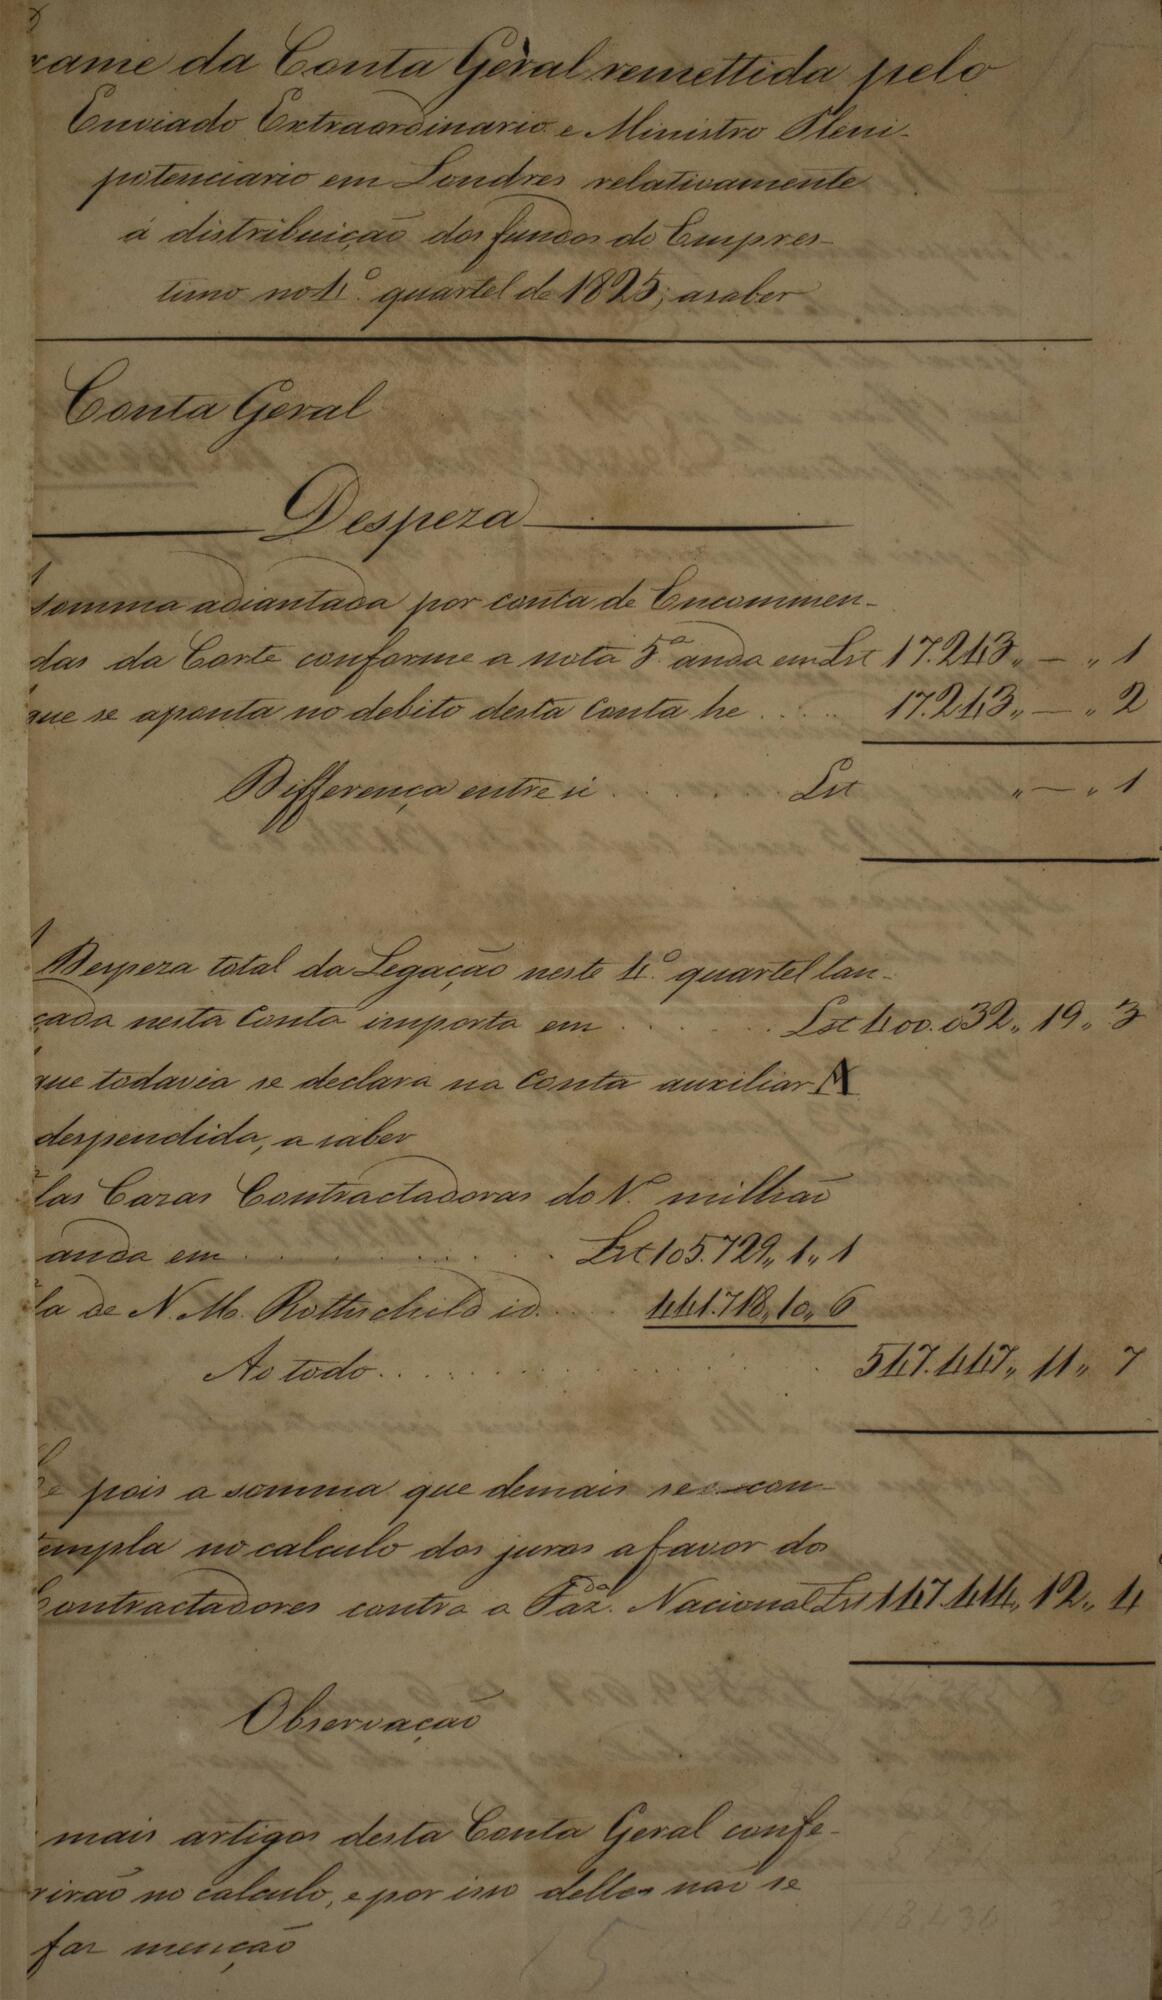 xame da Conta Geral remettida pelo
Enviado Extraordinario e Ministro Pleni-
potenciario em Londres relativamente
á distribuição dos fundos do Empres-
timo no 4º quartel de 1825; a saber
Conta Geral
Despeza
somma adiantada por conta de Encommen-
das da Corte conforme a nota 5ª anda em Lst 17.243,, — ,, 1
que se aponta no debito desta Conta he .... 17.243,, — ,, 2
Differença entre si ...... Lst ,, — ,, 1
Despeza total da Legação neste 4º quartel lan-
çada nesta Conta importa em ...... Lst 400.032,, 19,, 3
que todavia se declara na Conta auxiliar A
despendida, a saber
las Cazas Contractadoras do N. milhão
anda em ........ Lst 105.729,, 1,, 1
la de N. M. Rothschild id. .... 441.718,, 10,, 6
Ao todo ........ 547.447,, 11,, 7
He pois a somma que demais se con-
templa no calculo dos juros a favor dos
Contractadores contra a Fazda. Nacional Lst 147.414,, 12,, 4
Observação
mais artigos desta Conta Geral confe-
rirão no calculo, e por isso delles não se
faz menção